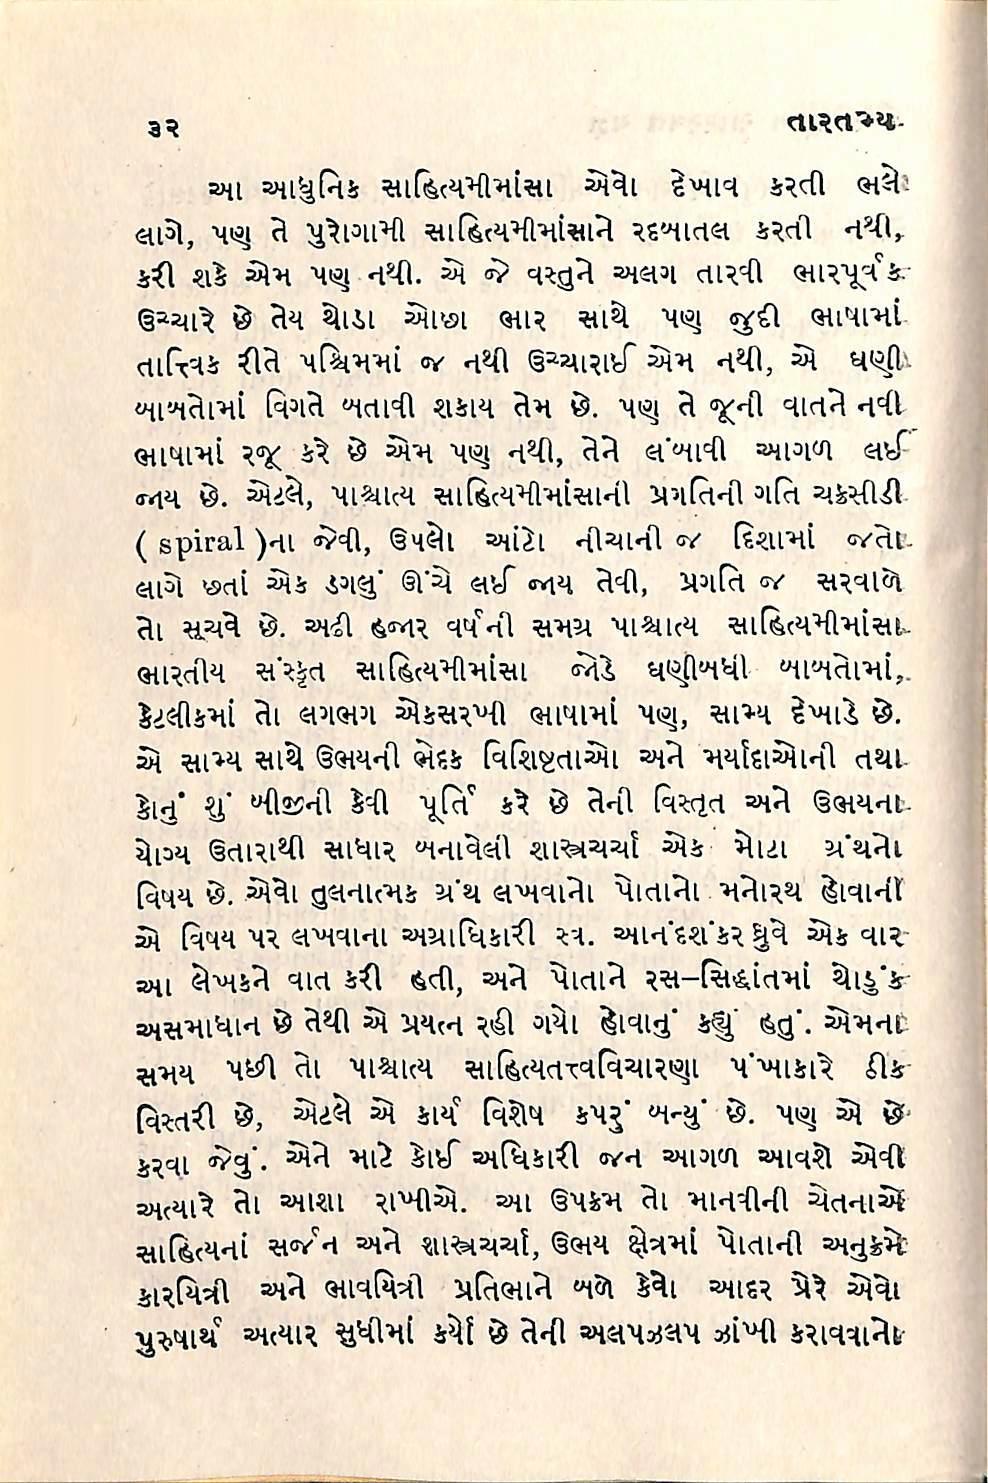 ૩૨ તારતમ્ય
આ આધુનિક સાહિત્યમીમાંસા એવો દેખાવ કરતી ભલે
લાગે, પણ તે પુરોગામી સાહિત્યમીમાંસાને રદબાતલ કરતી નથી,
કરી શકે એમ પણ નથી. એ જે વસ્તુને અલગ તારવી ભારપૂર્વક
ઉચ્ચારે છે તેય થોડા ઓછા ભાર સાથે પણ જુદી ભાષામાં
તાત્ત્વિક રીતે પશ્ચિમમાં જ નથી ઉચ્ચારાઈ એમ નથી, એ ઘણી
બાબતોમાં વિગતે બતાવી શકાય તેમ છે. પણ તે જૂની વાતને નવી
ભાષામાં રજૂ કરે છે એમ પણ નથી, તેને લંબાવી આગળ લઈ
જાય છે. એટલે, પાશ્ચાત્ય સાહિત્યમીમાંસાની પ્રગતિની ગતિ ચક્રસીડી
( spiral )ના જેવી, ઉપલો આંટો નીચાની જ દિશામાં જતો
લાગે છતાં એક ડગલું ઊંચે લઈ જાય તેવી, પ્રગતિ જ સરવાળે
તો સૂચવે છે. અઢી હજાર વર્ષની સમગ્ર પાશ્ચાત્ય સાહિત્યમીમાંસા
ભારતીય સંસ્કૃત સાહિત્યમીમાંસા જોડે ઘણીબધી બાબતોમાં,
કેટલીકમાં તો લગભગ એકસરખી ભાષામાં પણ, સામ્ય દેખાડે છે.
એ સામ્ય સાથે ઉભયની ભેદક વિશિષ્ટતાઓ અને મર્યાદાઓની તથા
કોનું શું બીજીની કેવી પૂર્તિ કરે છે તેની વિસ્તૃત અને ઉભયના
યોગ્ય ઉતારાથી સાધાર બનાવેલી શાસ્ત્રચર્ચા એક મોટા ગ્રંથનો
વિષય છે. એવો તુલનાત્મક ગ્રંથ લખવાનો પોતાનો મનોરથ હોવાની
એ વિષય પર લખવાના અગ્રાધિકારી સ્વ. આનંદશંકર ધ્રુવે એક વાર
આ લેખકને વાત કરી હતી, અને પોતાને રસ–સિદ્ધાંતમાં થોડુંક
અસમાધાન છે તેથી એ પ્રયત્ન રહી ગયો હોવાનું કહ્યું હતું. એમના
સમય પછી તો પાશ્ચાત્ય સાહિત્યતત્ત્વવિચારણા પંખાકારે ઠીક
વિસ્તરી છે, એટલે એ કાર્ય વિશેષ કપરું બન્યું છે. પણ એ છે
કરવા જેવું. એને માટે કોઈ અધિકારી જન આગળ આવશે એવી
અત્યારે તો આશા રાખીએ. આ ઉપક્રમ તો માનવીની ચેતનાએ
સાહિત્યનાં સર્જન અને શાસ્ત્રચર્ચા, ઉભય ક્ષેત્રમાં પોતાની અનુક્રમે
કારયિત્રી અને ભાવયિત્રી પ્રતિભાને બળે કેવો આદર પ્રેરે એવો
પુરુષાર્થ અત્યાર સુધીમાં કર્યો છે તેની અલપઝલપ ઝાંખી કરાવવાનો